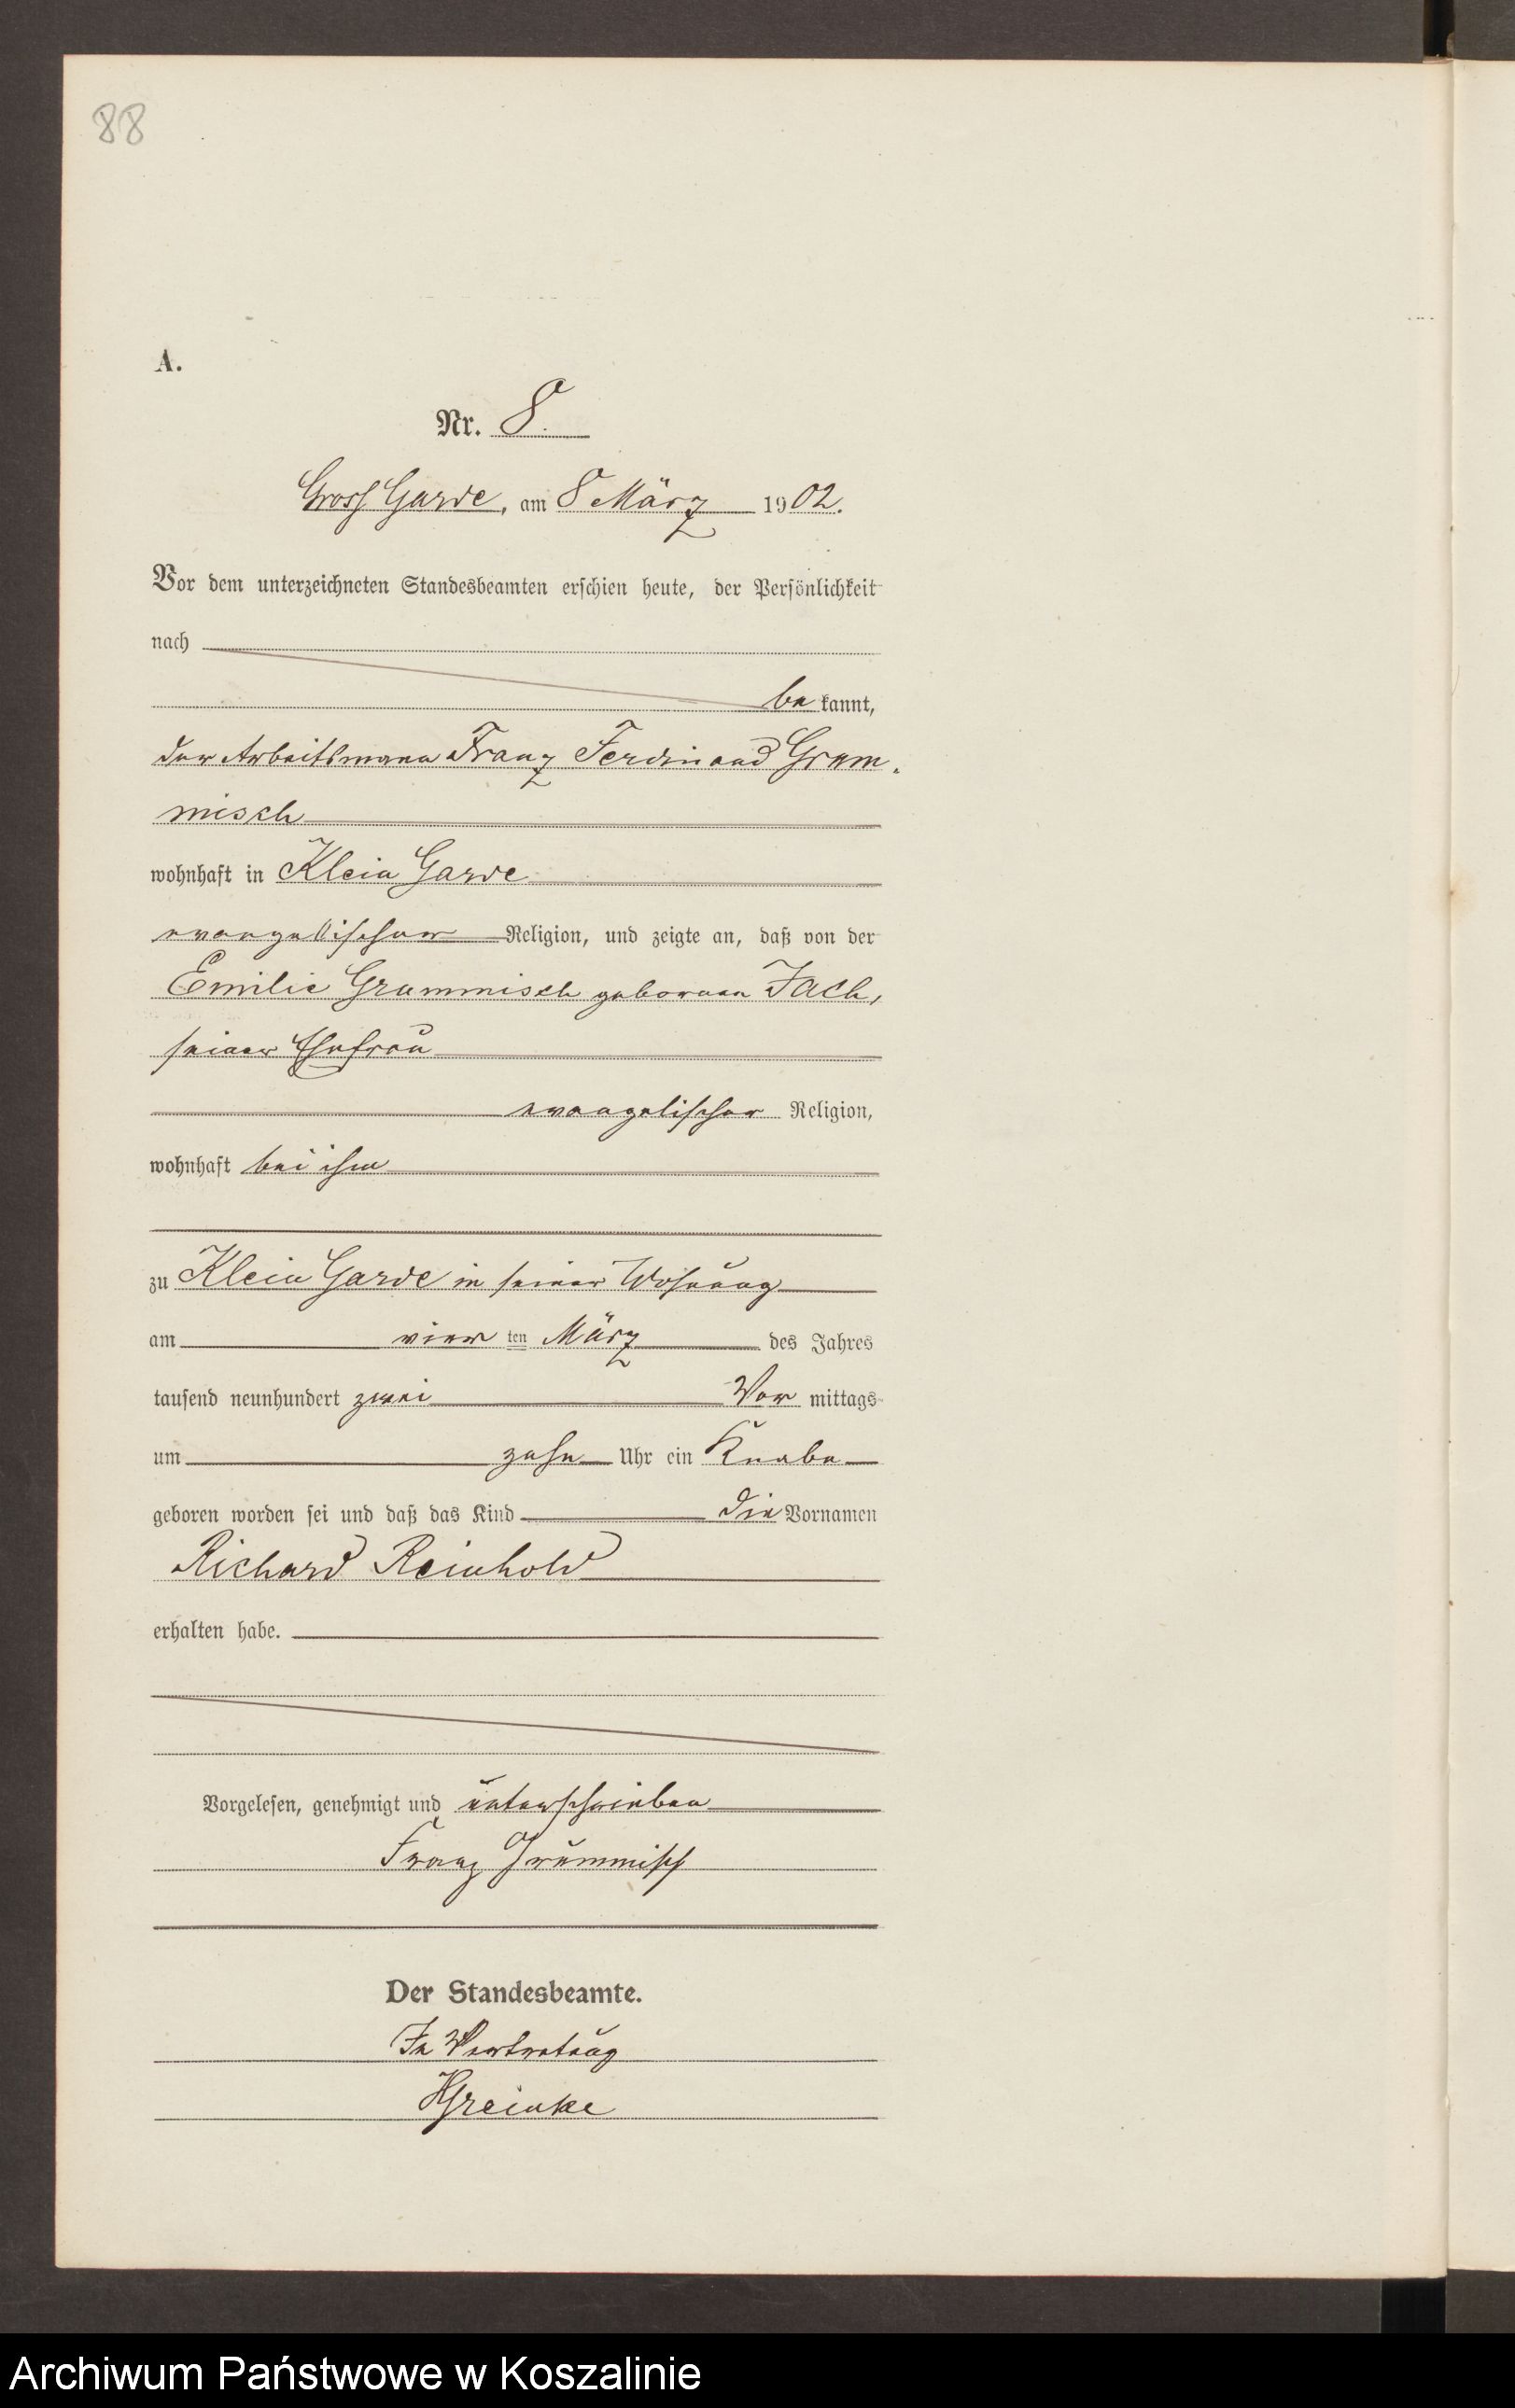 88
A.
Nr. 8.
Gross Garde, am 8 März 1902.
Vor dem unterzeichneten Standesbeamten erschien heute, der Persönlichkeit
nach
bekannt,
der Arbeitsmann Franz Ferdinand Grum-
misch
wohnhaft in Klein Garde
evangelischer Religion, und zeigte an, daß von der
Emilie Grummisch geborenen Jach,
seiner Ehefrau
evangelischer Religion,
wohnhaft bei ihm
zu Klein Garde in seiner Wohnung
am vier ten März des Jahres
tausend neunhundert zwei Vor mittags
um zehn Uhr ein Knabe
geboren worden sei und daß das Kind die Vornamen
Richard Reinhold
erhalten habe.
Vorgelesen, genehmigt und unterschrieben
Franz Grummisch
Der Standesbeamte.
In Vertretung
HGreinke
Archiwum Państwowe w Koszalinie